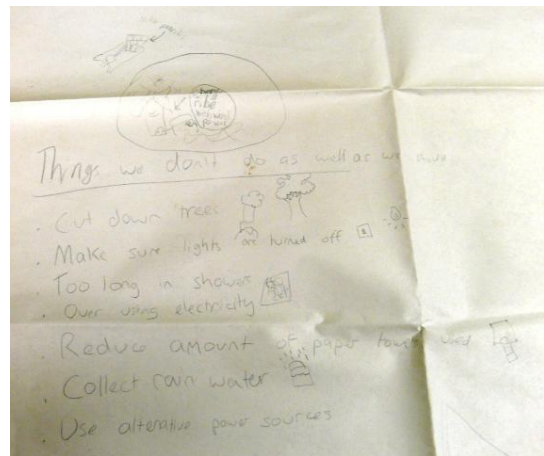 Things we don't do as well as we
. Cut down trees
. Make sure lights are turned off
. Too long in shower
. Over using electricity
. Reduce amount of paper towels used
. Collect rain water
. Use alterative power sources